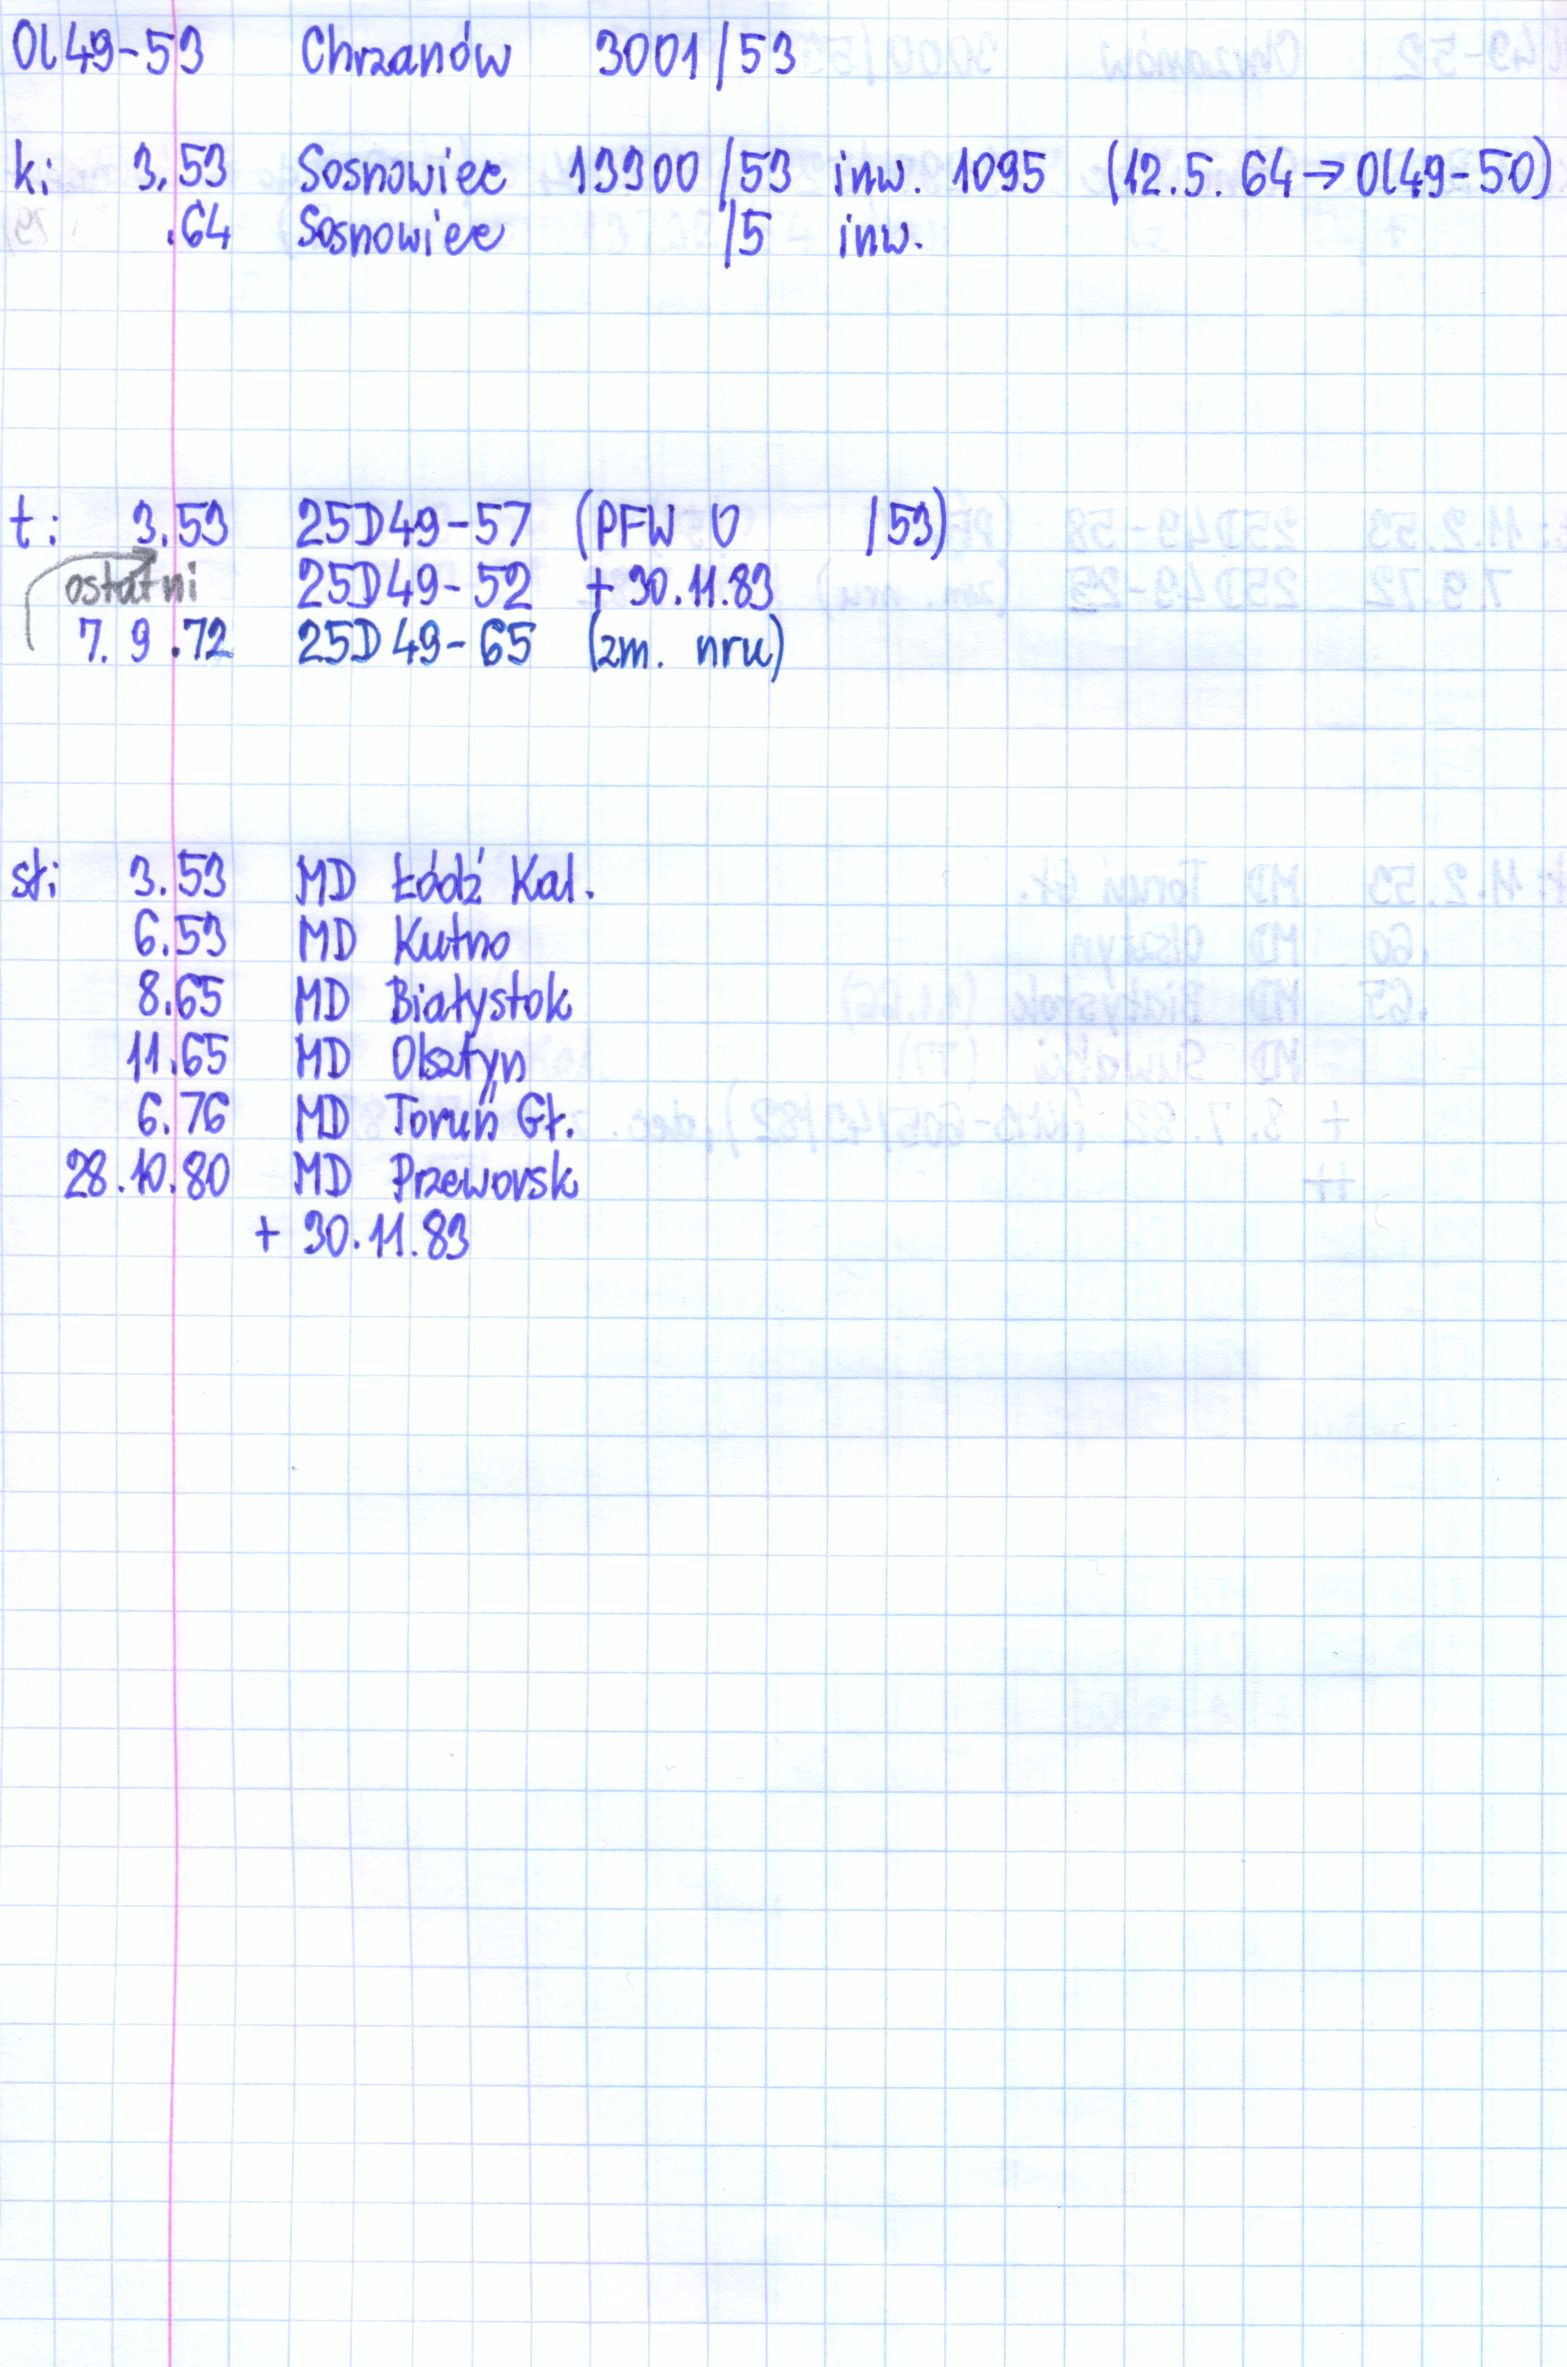 Ol49-53 Chrzanów 3001/53
k: 3.53 Sosnowiec 13300/53 inw. 1095 (12.5.64→Ol49-50)
.64 Sosnowiec /5 inw.
t: 3.53 25D49-57 (PFW 0 /53)
ostatni 25D49-52 + 30.11.83
7.9.72 25D49-65 (zm. nru)
st: 3.53 MD Łódź Kal.
6.53 MD Kutno
8.65 MD Białystok
11.65 MD Olsztyn
6.76 MD Toruń Gł.
28.10.80 MD Przeworsk
+ 30.11.83